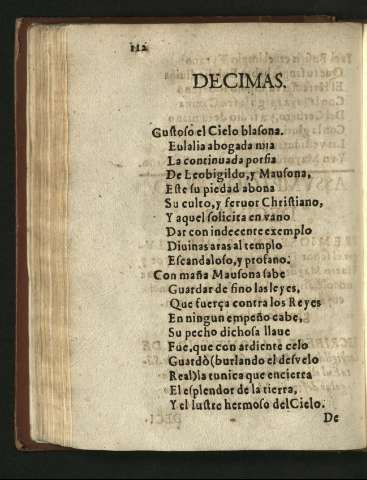 112
DECIMAS.
Gustoso el Cielo blasona.
Eulalia abogada mia
La continuada porfia
De Leobigildo, y Mausona,
Este su piedad abona
Su culto, y feruor Christiano,
Y aquel solicita en vano
Dar con indecente exemplo
Diuinas aras al templo
Escandaloso, y profano.
Con maña Mausona sabe
Guardar de fino las leyes,
Que fuerça contra los Reyes
En ningun empeño cabe,
Su pecho dichosa llaue
Fue, que con ardiente celo
Guardò (burlando el desvelo
Real) la tunica que encierra
El esplendor de la tierra,
Y el lustre hermoso del Cielo.
De